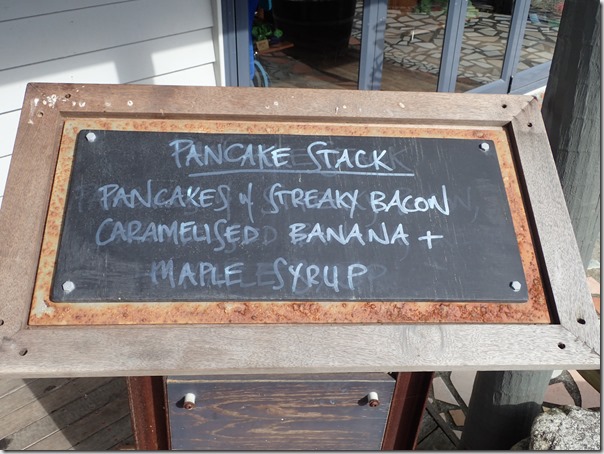 PANCAKE STACK
PANCAKES & STREAKY BACON
CARAMELISED BANANA +
MAPLE SYRUP